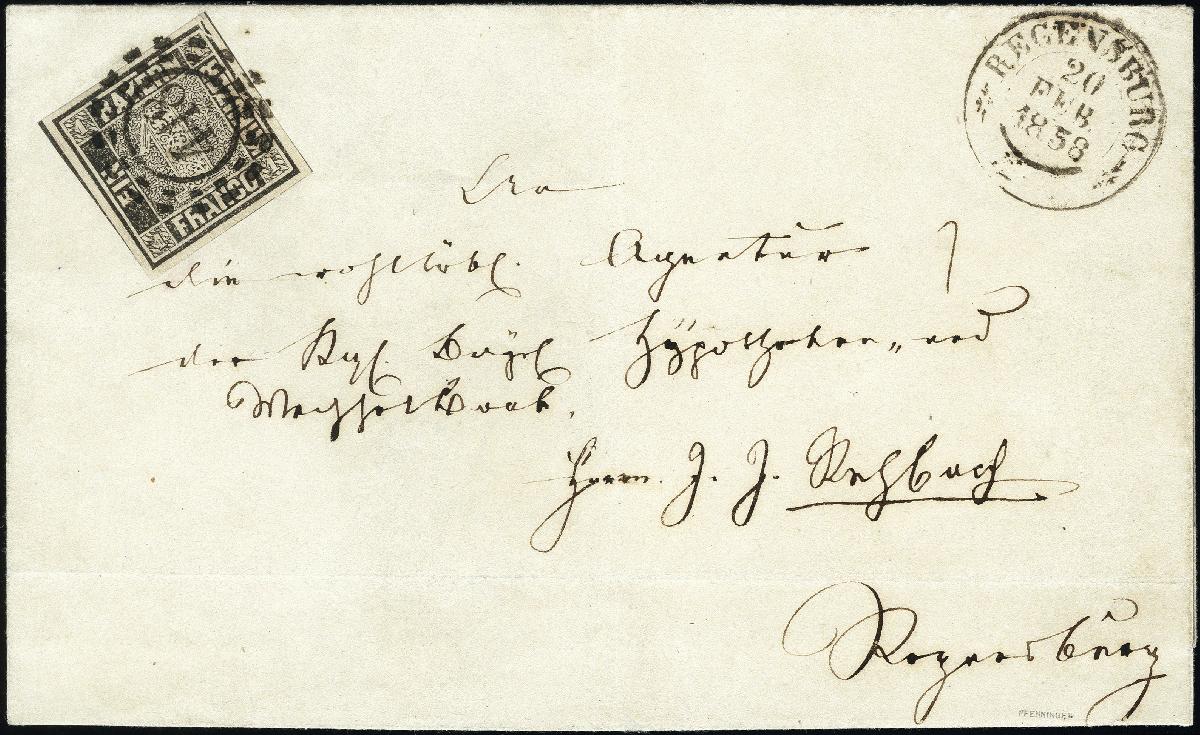 BAYERN
EIN KREUZER
FRANCO
REGENSBURG
20
FEB.
1858
An
die wohllöbl. Agentur
der Kgl. Bayr. Hypotheken- und
Wechselbank.
Herrn. J. J. Rehbach
Regensburg
PFENNINGER